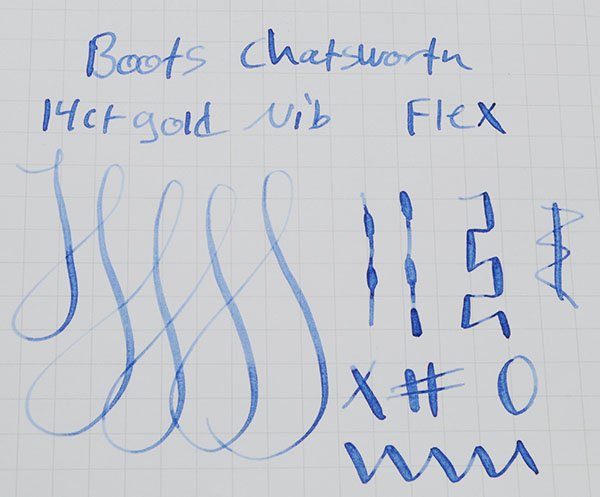 Boots Chatsworth
14ct gold Nib Flex
X # 0